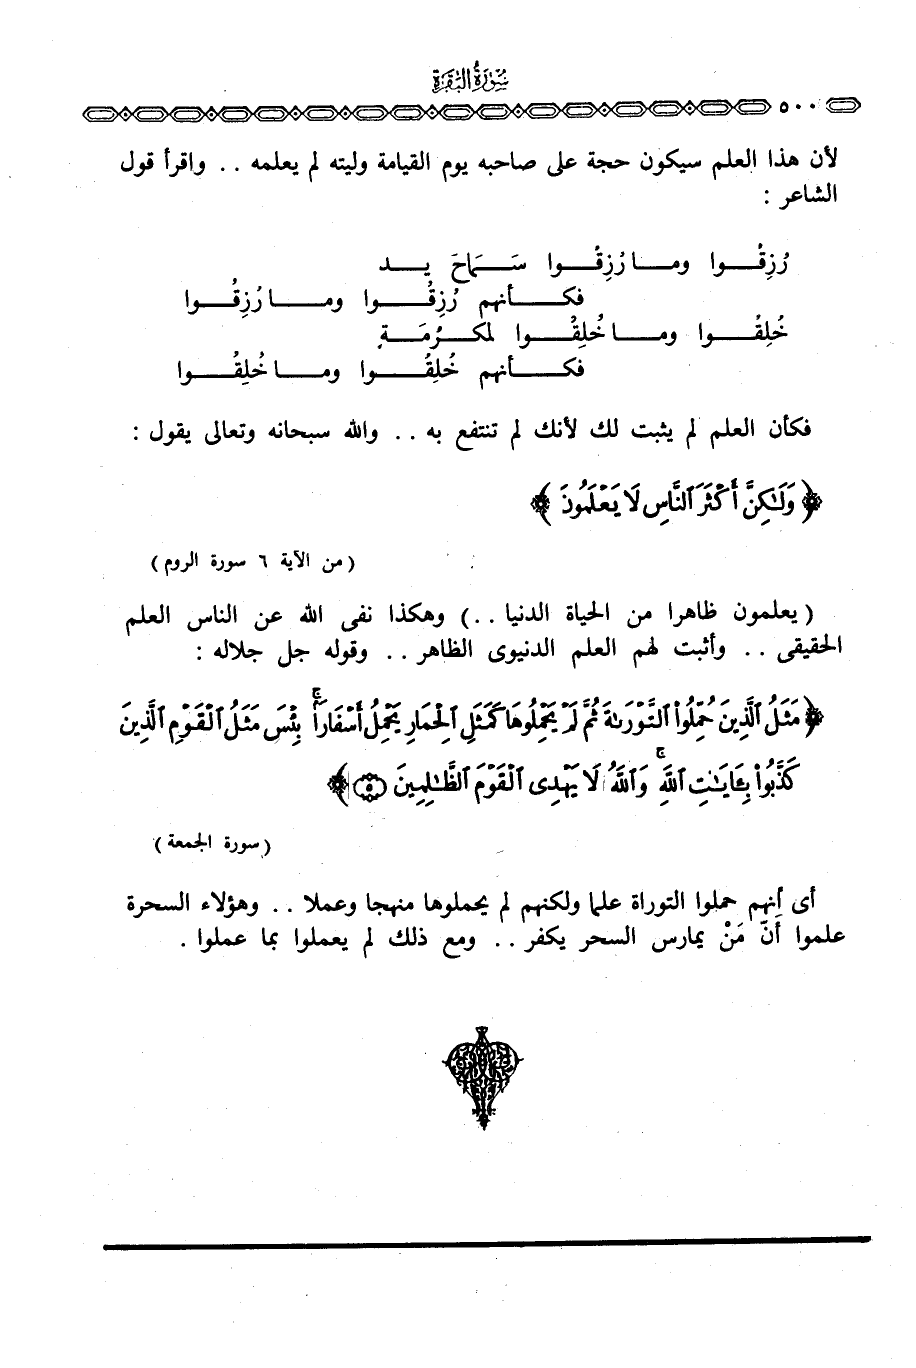 سُورَةُ البَقَرَةِ
٥٠٠
لأن هذا العلم سيكون حجة على صاحبه يوم القيامة وليته لم يعلمه .. واقرأ قول
الشاعر :
رُزِقُوا وما رُزِقُوا سَمَاحَ يد
فكأنهم رُزِقُوا وما رُزِقُوا
خُلِقُوا وما خُلِقُوا لمكرُمَةٍ
فكأنهم خُلِقُوا وما خُلِقُوا
فكأن العلم لم يثبت لك لأنك لم تنتفع به .. والله سبحانه وتعالى يقول :
﴿ وَلَٰكِنَّ أَكْثَرَ ٱلنَّاسِ لَا يَعْلَمُونَ ﴾
( من الآية ٦ سورة الروم )
( يعلمون ظاهرا من الحياة الدنيا .. ) وهكذا نفى الله عن الناس العلم
الحقيقى .. وأثبت لهم العلم الدنيوى الظاهر .. وقوله جل جلاله :
﴿ مَثَلُ ٱلَّذِينَ حُمِّلُوا۟ ٱلتَّوْرَىٰةَ ثُمَّ لَمْ يَحْمِلُوهَا كَمَثَلِ ٱلْحِمَارِ يَحْمِلُ أَسْفَارًاۚ بِئْسَ مَثَلُ ٱلْقَوْمِ ٱلَّذِينَ
كَذَّبُوا۟ بِـَٔايَٰتِ ٱللَّهِۚ وَٱللَّهُ لَا يَهْدِى ٱلْقَوْمَ ٱلظَّٰلِمِينَ (٥) ﴾
( سورة الجمعة )
أى أنهم حملوا التوراة علما ولكنهم لم يحملوها منهجا وعملا .. وهؤلاء السحرة
علموا أَنّ مَنْ يمارس السحر يكفر .. ومع ذلك لم يعملوا بما عملوا .